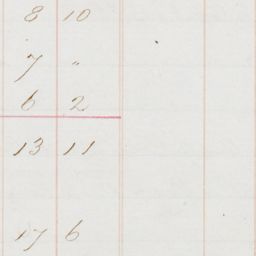 8 10
7 "
6 2
13 11
17 6